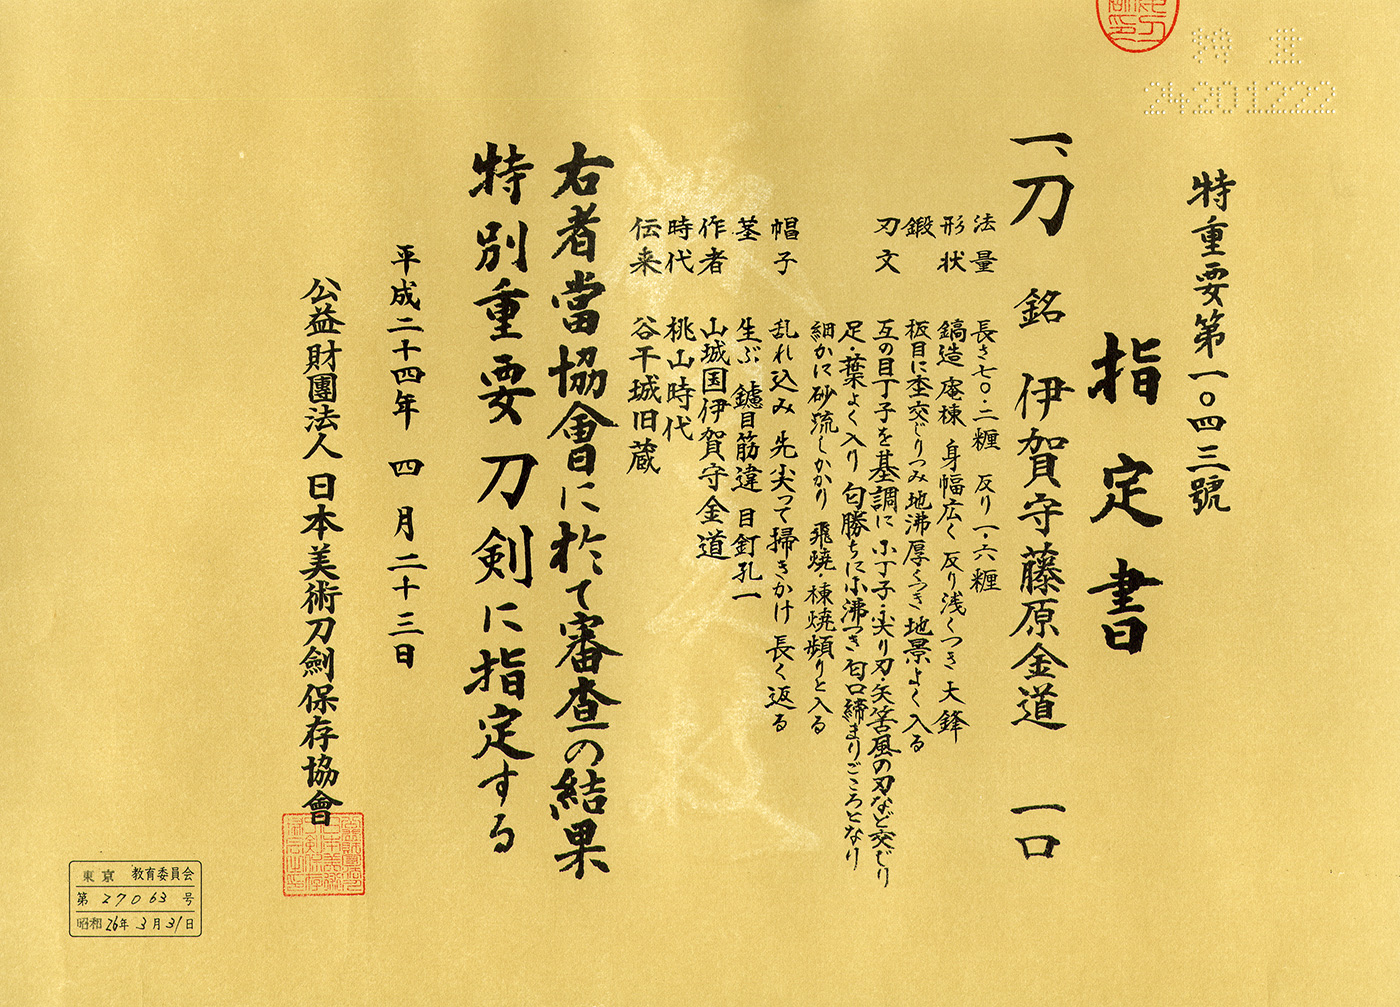 特重
24201222
特重要第一〇四三號
指定書
一、刀 銘 伊賀守藤原金道 一口
法量 長さ七〇・二糎 反り一・六糎
形状 鎬造 庵棟 身幅広く 反り浅くつき 大鋒
鍛 板目に杢交じりつみ 地沸厚くつき 地景よく入る
刃文 互の目丁子を基調に 小丁子・尖り刃・矢筈風の刃など交じり
足・葉よく入り 匂勝ちに小沸つき 匂口締まりごころとなり
細かに砂流しかかり 飛焼・棟焼頻りと入る
帽子 乱れ込み 先尖って掃きかけ 長く返る
茎 生ぶ 鑢目筋違 目釘孔一
作者 山城国伊賀守金道
時代 桃山時代
伝来 谷干城旧蔵
右者當協會に於て審査の結果
特別重要刀剣に指定する
平成二十四年 四月二十三日
公益財團法人 日本美術刀劍保存協會
東京 教育委員会
第 27063 号
昭和26年3月31日